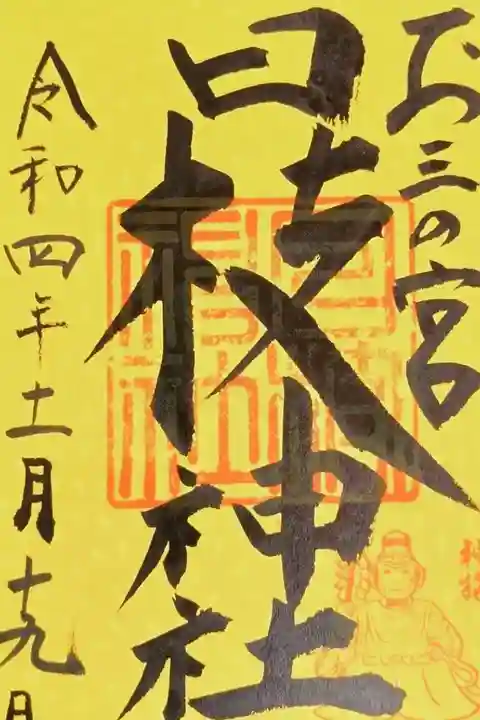 お三の宮
日枝神社
令和四年十一月十九日